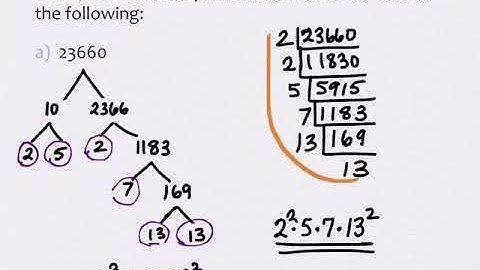 the following:
a) 23660
10 2366
2 5 2 1183
7 169
13 13
2 23660
2 11830
5 5915
7 1183
13 169
13
2²·5·7·13²